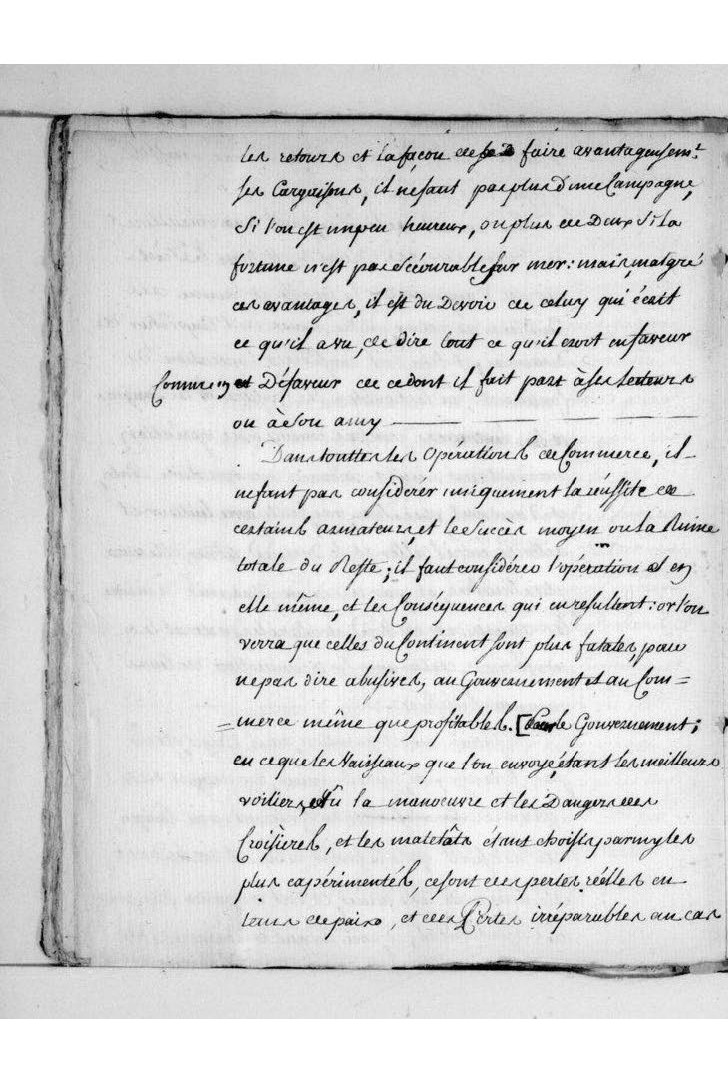 les retours et la façon de faire avantageusem.t
ses Cargaisons, il ne faut pas plus d'une Campagne,
Si l'on est un peu heureux, ou plus de Deux Si la
fortune n'est pas Sécourable sur mer: mais, malgré
ces avantages, il est du Devoir de celuy qui écrit
ce qu'il a vu, de dire tout ce qu'il croit en faveur
et Défaveur de ce dont il fait part à ses Lecteurs
ou à Son amy
Dans touttes les Operations de Commerce, il
ne faut pas considérér uniquement la réussite de
certains armateurs, et le Succès moyen ou la Ruine
totale du Reste; il faut considérer l'opération et en
elle même, et les Conséquences qui en résultent: or l'on
verra que celles du Continent sont plus fatales, pour
ne pas dire abusives, au Gouvernement et au Com=
=merce même que profitables. [Pour le Gouvernement;
en ce que les Vaisseaux que l'on envoye, étant les meilleurs
voiliers, vû la manoeuvre et les Dangers des
Croisières, et les matelôts étant choisis parmy les
plus expérimentés, ce sont des pertes réelles en
tems de paix, et des Pertes irréparables au cas